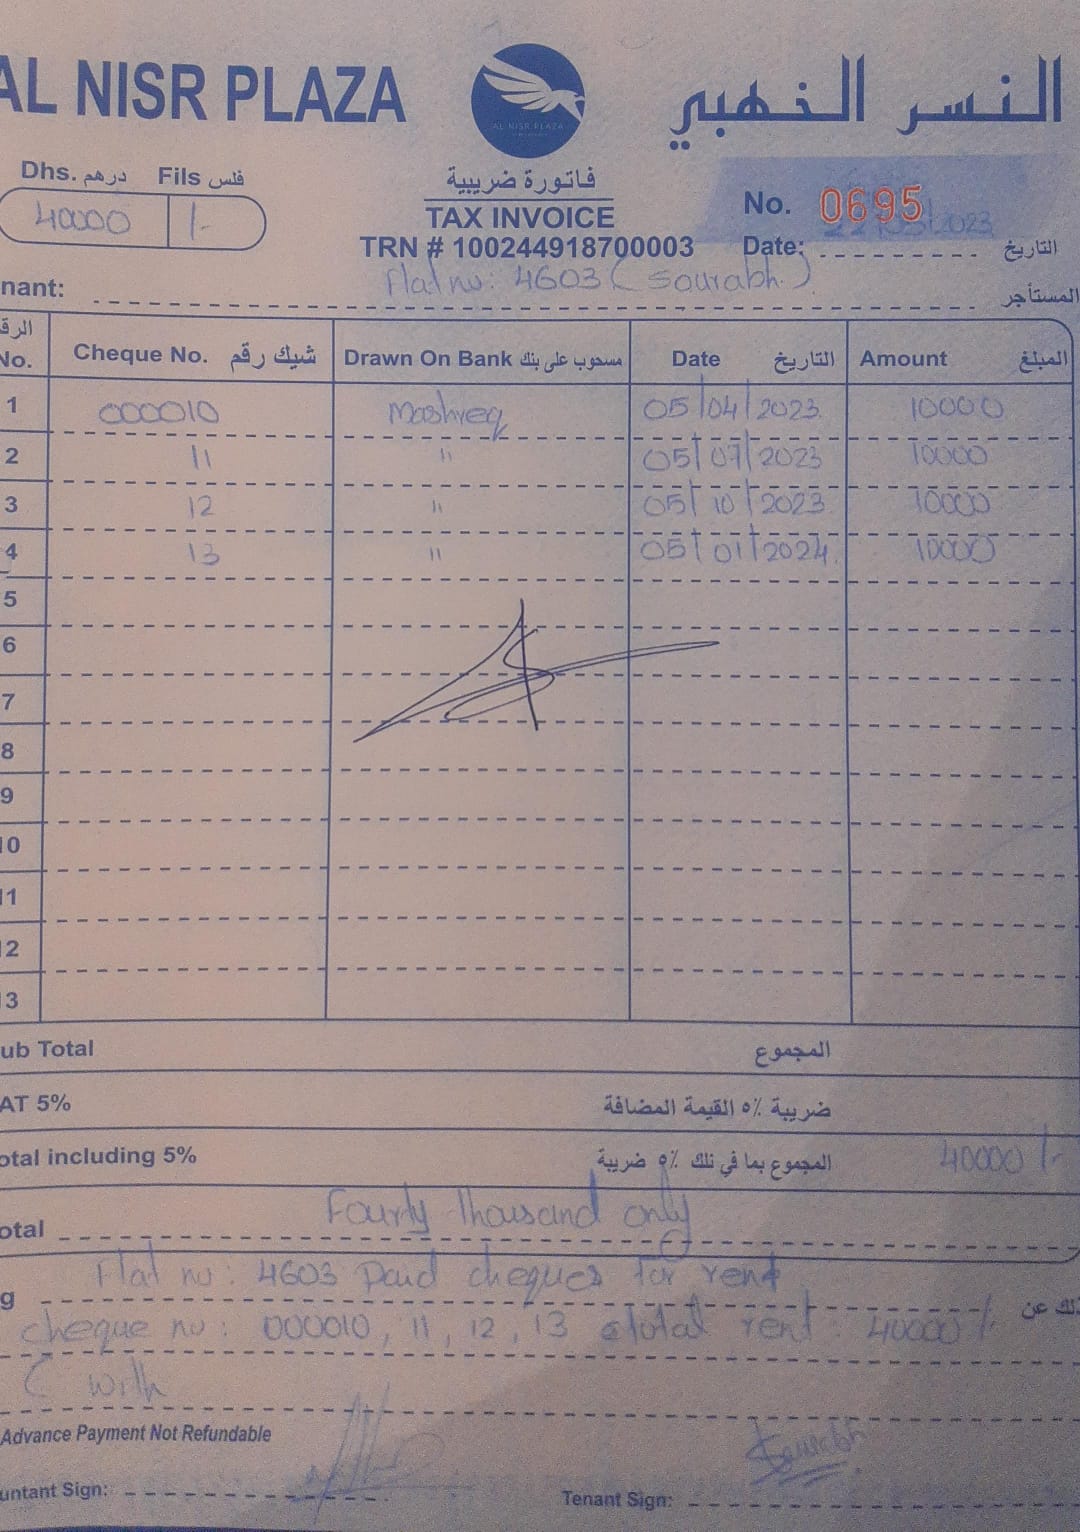 AL NISR PLAZA
النسر الخهبي
AL NISR PLAZA
Dhs. درهم Fils فلس
40000 1-
فاتورة ضريبية
TAX INVOICE
TRN # 100244918700003
No. 0695
Date: 2023 التاريخ
nant: Flat no: 4603 (Sourabh.) المستأجر
الرق No. Cheque No. شيك رقم Drawn On Bank مسحوب على بنك Date التاريخ Amount المبلغ
1 000010 Mashreq 05/04/2023 10000
2 11 " 05/07/2023 10000
3 12 " 05/10/2023 10000
4 13 " 05/01/2024 10000
5
6
7
8
9
10
11
12
13
ub Total المجموع
AT 5% ضريبة ٥٪ القيمة المضافة
otal including 5% المجموع بما في نلك ٥٪ ضريبة 40000/-
otal Fourty thousand only
g Flat no: 4603 Paid cheques for rent ذلك عن
cheque no: 000010, 11, 12, 13 total rent: 40000/-
( with
Advance Payment Not Refundable
untant Sign:
Tenant Sign: Sourabh